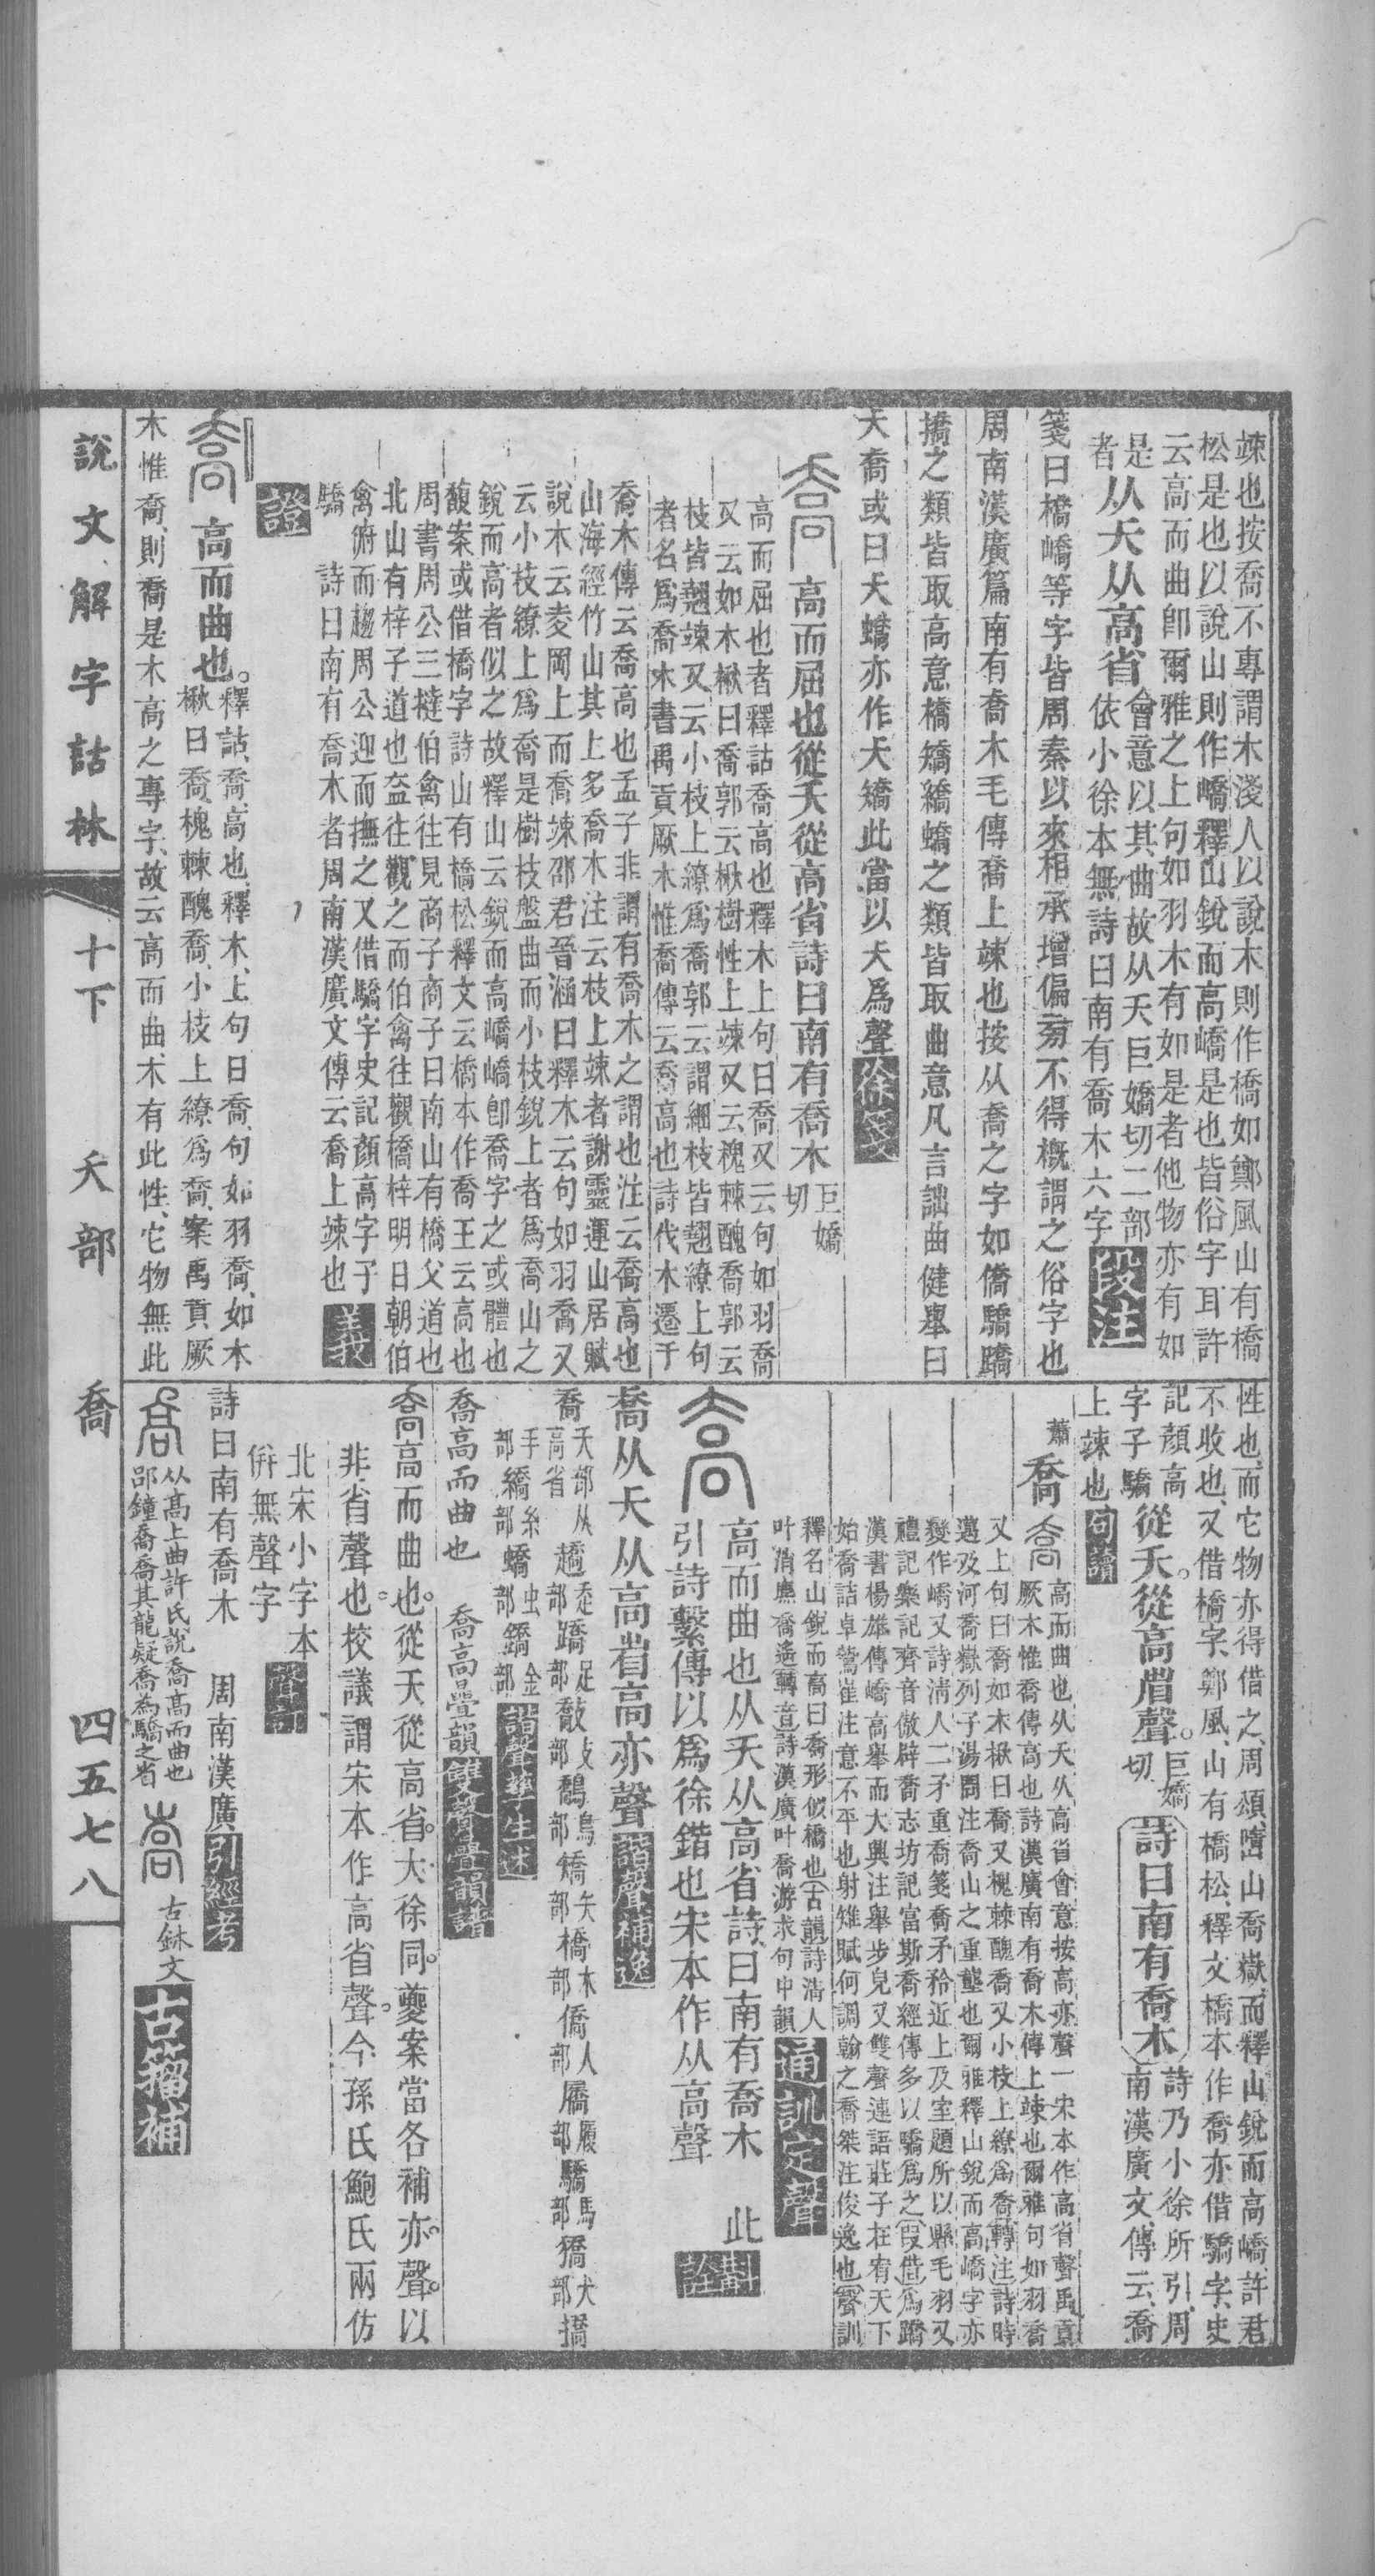 竦也按喬不專謂木淺人以說木則作橋如鄭風山有橋
松是也以說山則作嶠釋山銳而高嶠是也皆俗字耳許
云高而曲卽爾雅之上句如羽木有如是者他物亦有如
是
者从夭从高省
會意以其曲故从夭巨嬌切二部
依小徐本無詩曰南有喬木六字
段注
箋曰橋嶠等字皆周秦以來相承增偏旁不得槪謂之俗字也
周南漢廣篇南有喬木毛傳喬上竦也按从喬之字如僑驕蹻
撟之類皆取高意橋矯繑蟜之類皆取曲意凡言詘曲健舉曰
夭喬或曰夭蟜亦作夭矯此當以夭爲聲徐箋
高而屈也從夭從高省詩曰南有喬木
巨嬌
切
高而屈也者釋詁喬高也釋木上句曰喬又云句如羽喬
又云如木楸曰喬郭云楸樹性上竦又云槐棘醜喬郭云
枝皆翹竦又云小枝上繚爲喬郭云謂細枝皆翹繚上句
者名爲喬木書禹貢厥木惟喬傳云喬高也詩伐木遷于
喬木傳云喬高也孟子非謂有喬木之謂也注云喬高也
山海經竹山其上多喬木注云枝上竦者謝靈運山居賦
說木云夌岡上而喬竦邵君晉涵曰釋木云句如羽喬又
云小枝繚上爲喬是樹枝盤曲而小枝銳上者爲喬山之
銳而高者似之故釋山云銳而高嶠嶠卽喬字之或體也
馥案或借橋字詩山有橋松釋文云橋本作喬王云高也
周書周公三撻伯禽往見商子商子曰南山有橋父道也
北山有梓子道也盍往觀之而伯禽往觀橋梓明日朝伯
禽俯而趨周公迎而撫之又借驕字史記顏高字子
驕
詩曰南有喬木者周南漢廣文傳云喬上竦也
義
證
高而曲也。
釋詁、喬、高也、釋木、上句曰喬、句如羽喬、如木
楸曰喬、槐棘醜喬、小枝上繚爲喬、案禹貢、厥
木惟喬、則喬是木高之專字、故云高而曲、木有此性、它物無此
性也、而它物亦得借之、周頌、嶞山喬嶽、而釋山銳而高嶠、許君
不收也、又借橋字、鄭風、山有橋松、釋文橋本作喬亦借驕字、史
記顏高
字子驕
從夭。從高省聲。
巨嬌
切
詩曰南有喬木
詩乃小徐所引、周
南漢廣文、傳云、喬
上竦也
句讀
蕭
喬
高而曲也从夭从高省會意按高亦聲一宋本作高省聲禹貢
厥木惟喬傳高也詩漢廣南有喬木傳上竦也爾雅句如羽喬
又上句曰喬如木楸曰喬又槐棘醜喬又小枝上繚爲喬轉注詩時
邁及河喬嶽列子湯問注喬山之重壟也爾雅釋山銳而高嶠字亦
變作嶠又詩淸人二矛重喬箋喬矛矜近上及室題所以縣毛羽又
禮記樂記齊音傲辟喬志坊記富斯喬經傳多以驕爲之叚借爲蹻
漢書楊雄傳嶠高舉而大興注舉步皃又雙聲連語莊子在宥天下
始喬詰卓鷙崔注意不平也射雉賦何調翰之喬桀注俊逸也聲訓
釋名山銳而高曰喬形似橋也古韻詩淸人
叶消麃喬遙轉音詩漢廣叶喬游求句中韻
通訓定聲
高而曲也从夭从高省詩曰南有喬木　此
引詩繫傳以爲徐鍇也宋本作从高聲
斠詮
喬从夭从高省高亦聲諧聲補逸
喬
夭部从
高省
趫
走
部
蹻
足
部
敿
攴
部
鷮
鳥
部
矯
矢
部
橋
木
部
僑
人
部
屩
履
部
驕
馬
部
獢
犬
部
撟
手
部
繑
糸
部
蟜
虫
部
鐈
金
部
諧聲孳生述
喬高而曲也　喬高曡韻雙聲疊韻譜
喬高而曲也。從夭從高省。大徐同。夔案當各補亦聲。以
非省聲也。校議謂宋本作高省聲。今孫氏鮑氏兩仿
北宋小字本
併無聲字
詩曰南有喬木　周南漢廣引經考
从高上曲許氏說喬高而曲也
郘鐘喬喬其龍疑喬爲驕之省
古鉥文古籀補
說文解字詁林　十下　夭部　喬　四五七八